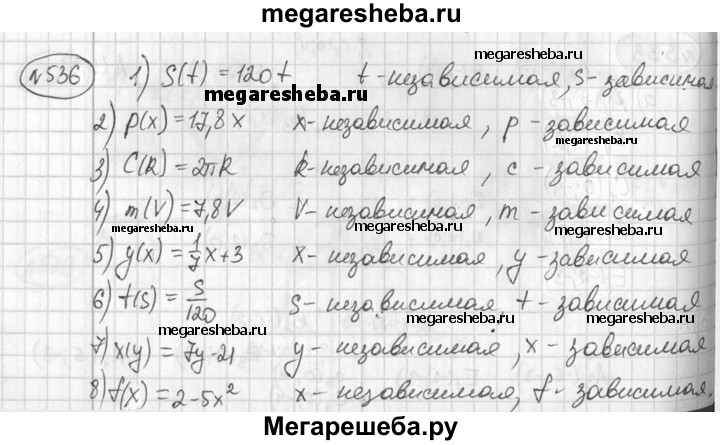 megaresheba.ru
№536 1) S(t) = 120t t - независимая, S - зависимая
megaresheba.ru
megaresheba.ru
2) p(x) = 17,8x x - независимая, p - зависимая
3) C(R) = 2πR R - независимая, c - зависимая
4) m(V) = 7,8V V - независимая, m - зависимая
megaresheba.ru megaresheba.ru
5) y(x) = 1/7 x + 3 x - независимая, y - зависимая
6) t(s) = s/120 s - независимая, t - зависимая
megaresheba.ru megaresheba.ru
7) x(y) = 7y - 21 y - независимая, x - зависимая
8) f(x) = 2 - 5x² x - независимая, f - зависимая.
megaresheba.ru
Мегарешеба.ру